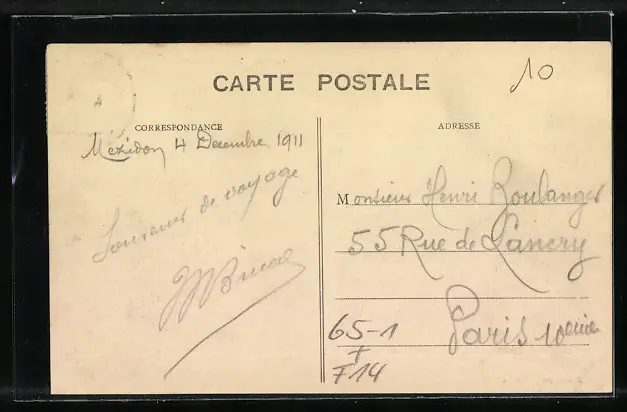 CARTE POSTALE
10
CORRESPONDANCE
Mézidon 4 Decembre 1911
Souvenir de voyage
ADRESSE
Monsieur Henri Boulanger
55 Rue de Lancry
Paris 10eme
65-1
+
F14